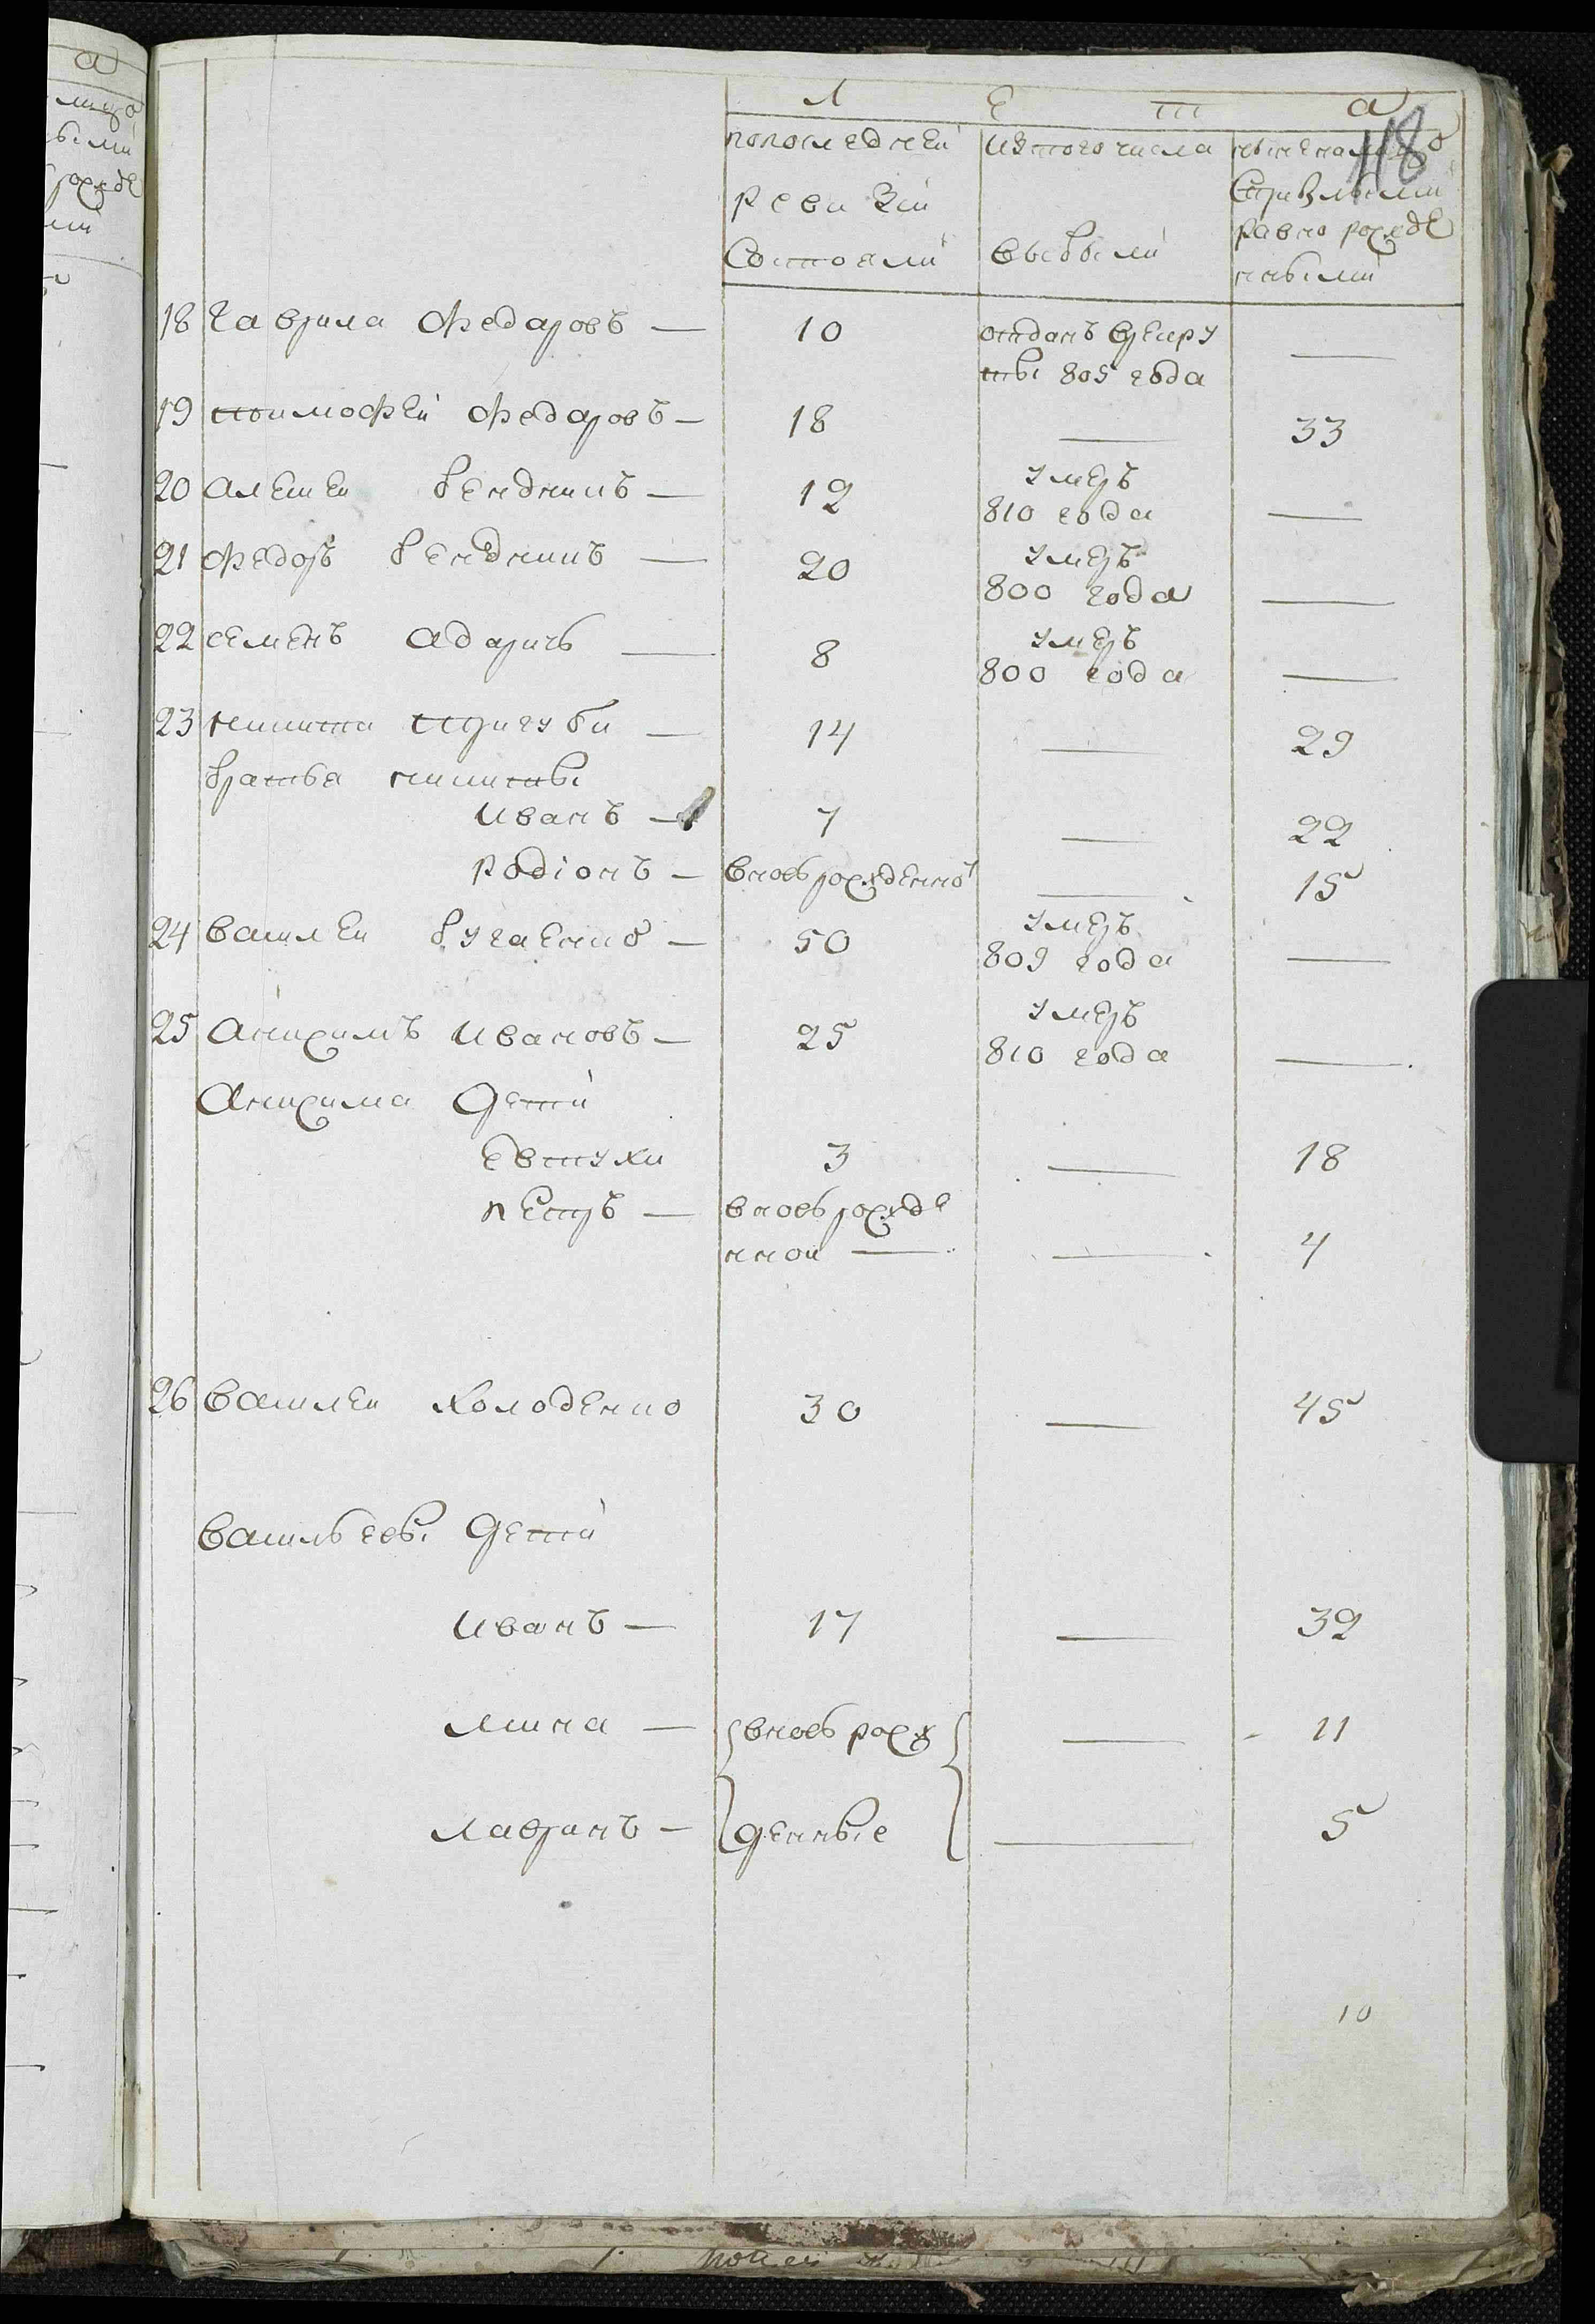 Л е т а
118
попоследней изтогочисла нынена лицо
Ревизіи
состояли выбыли
сприбылыми
равно рожде
нными
18 Гаврила Федаровъ — 10 отданъ врекру —
ты 805 года
19 тоимофей Федаровъ — 18 — 33
20 Алексей бендникъ — 12 умеръ
810 года —
21 Федоръ бендникъ — 20 умеръ
800 года —
22 семенъ Адаричъ — 8 умеръ
800 года —
23 никита — 14 — 29
братья никиты
Иванъ — 7 — 22
Родіонъ — вновьрожденной — 15
24 василей бугаенко — 50 умеръ
809 года —
25 Анихимъ Ивановъ — 25 умеръ
810 года —
Анихима дети
Евтухи 3 — 18
петръ — вновьрожде
нной — — 4
26 василей холоденко 30 — 45
васильевы дети
Иванъ — 17 — 32
мина — вновь рож — 11
лавринъ — денные — 5
10